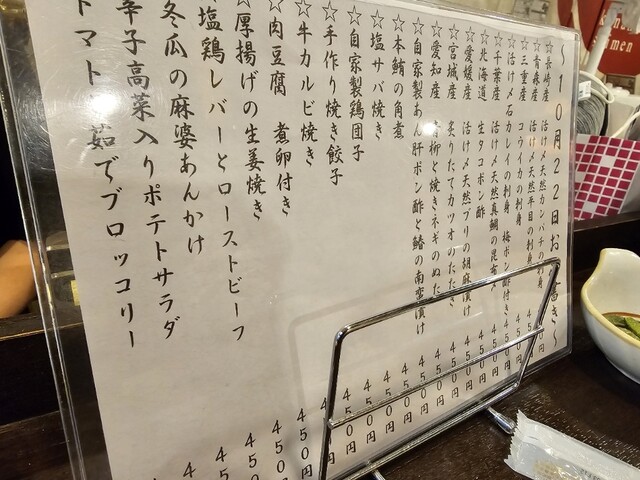 ～10月22日お
書き～
☆長崎産 活け〆天然カンパチの刺身 450円
☆青森産 活け〆天然平目の刺身 450円
☆三重産 コウイカの刺身 450円
☆活け〆石カレイの刺身 梅ポン酢付き 450円
☆千葉産 活け〆天然真鯛の昆布〆 450円
☆北海道 生タコポン酢 450円
☆愛媛産 活け〆天然ブリの胡麻漬け 450円
☆宮城産 炙りたてカツオのたたき 450円
☆愛知産 青柳と焼きネギのぬた 450円
☆自家製あん肝ポン酢と鱚の南蛮漬け 450円
☆本鮪の角煮 450円
☆塩サバ焼き 450円
☆自家製鶏団子 450円
☆手作り焼き餃子 450円
☆牛カルビ焼き 4
☆肉豆腐 煮卵付き 450円
☆厚揚げの生姜焼き 450円
塩鶏レバーとローストビーフ 450
冬瓜の麻婆あんかけ 45
辛子高菜入りポテトサラダ 4
トマト 茹でブロッコリー